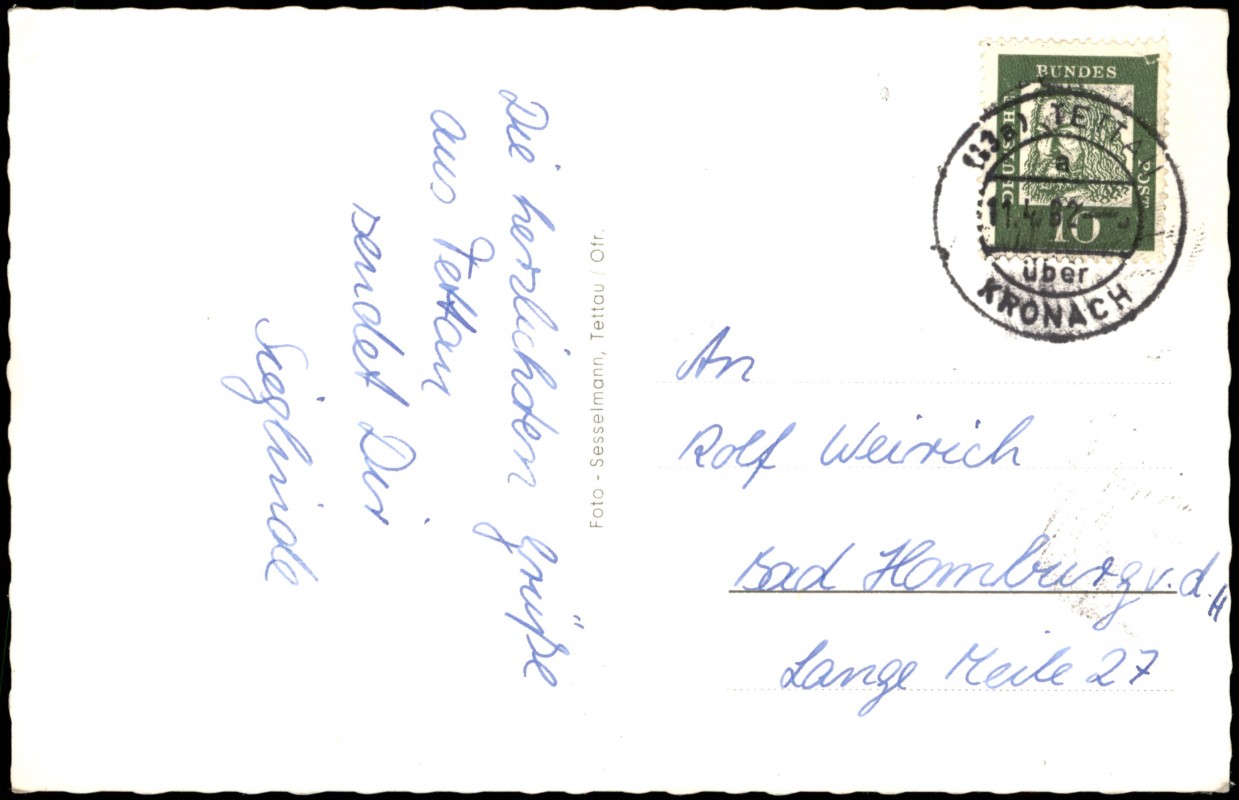 Die herzlichsten Grüße
aus Tettau
sendet Dir
Sieglinde
Foto - Sesselmann, Tettau / Ofr.
DEUTSCHE
BUNDES
POST
10
(13a) TETTAU
a
11.4.62
über
KRONACH
An
Rolf Weirich
Bad Homburg v. d. H
Lange Meile 27